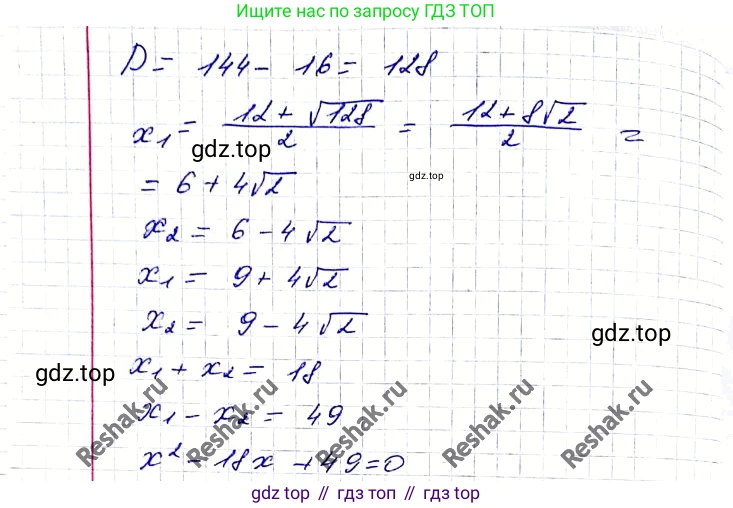 Ищите нас по запросу ГДЗ ТОП
D = 144 - 16 = 128
x₁ = (12 + √128)/2 = (12 + 8√2)/2 =
gdz.top
gdz.top
= 6 + 4√2
x₂ = 6 - 4√2
x₁ = 9 + 4√2
x₂ = 9 - 4√2
gdz.top
gdz.top
x₁ + x₂ = 18
x₁ - x₂ = 49
Reshak.ru Reshak.ru Reshak.ru Reshak.ru Reshak.ru
x² - 18x + 49 = 0
gdz top // гдз топ // gdz.top